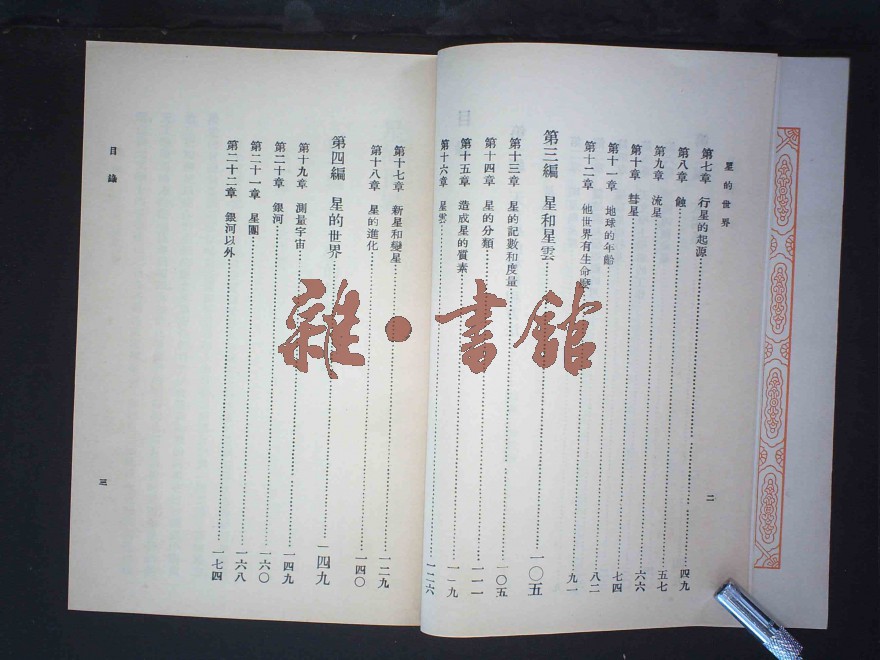 星的世界
第七章 行星的起源 四九
第八章 蝕 五七
第九章 流星 六六
第十章 彗星 七四
第十一章 地球的年齡 八二
第十二章 他世界有生命麼 九一
第三編 星和星雲 一〇五
第十三章 星的記數和度量 一〇五
第十四章 星的分類 一一一
第十五章 造成星的質素 一一九
第十六章 星雲 一二六
二
第十七章 新星和變星 一二九
第十八章 星的進化 一四〇
第四編 星的世界 一四九
第十九章 測量宇宙 一四九
第二十章 銀河 一六〇
第二十一章 星團 一六八
第二十二章 銀河以外 一七四
目錄
三
雜·書館